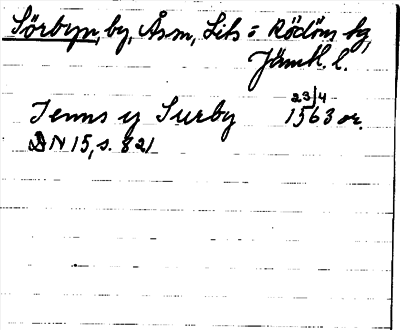 Sörbyn, by, Åsm, Lits = Rödöns tg,
Jämtl. l.
Jenns y Surby 23/4 1563 or.
DN 15, s. 821